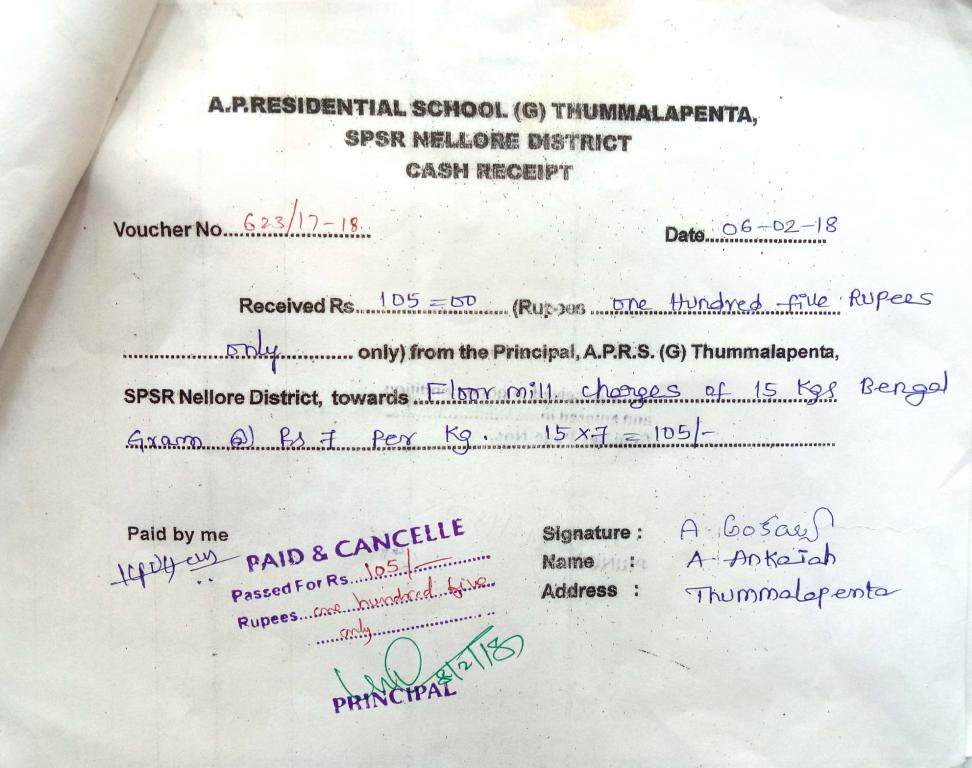 A.P.RESIDENTIAL SCHOOL (G) THUMMALAPENTA,
SPSR NELLORE DISTRICT
CASH RECEIPT
Voucher No....623/17-18.. Date...06-02-18
Received Rs...105=00......(Rupees ...one Hundred five Rupees
............only............ only) from the Principal, A.P.R.S. (G) Thummalapenta,
SPSR Nellore District, towards ..Floor mill charges of 15 Kgs Bengal
Gram @ Rs 7 Per Kg. 15x7 = 105/-
Paid by me
PAID & CANCELLE
Passed For Rs...105/-
Rupees...one hundred five
only
8/2/18
PRINCIPAL
Signature : A అంకయ్య
Name : A Ankaiah
Address : Thummalapenta